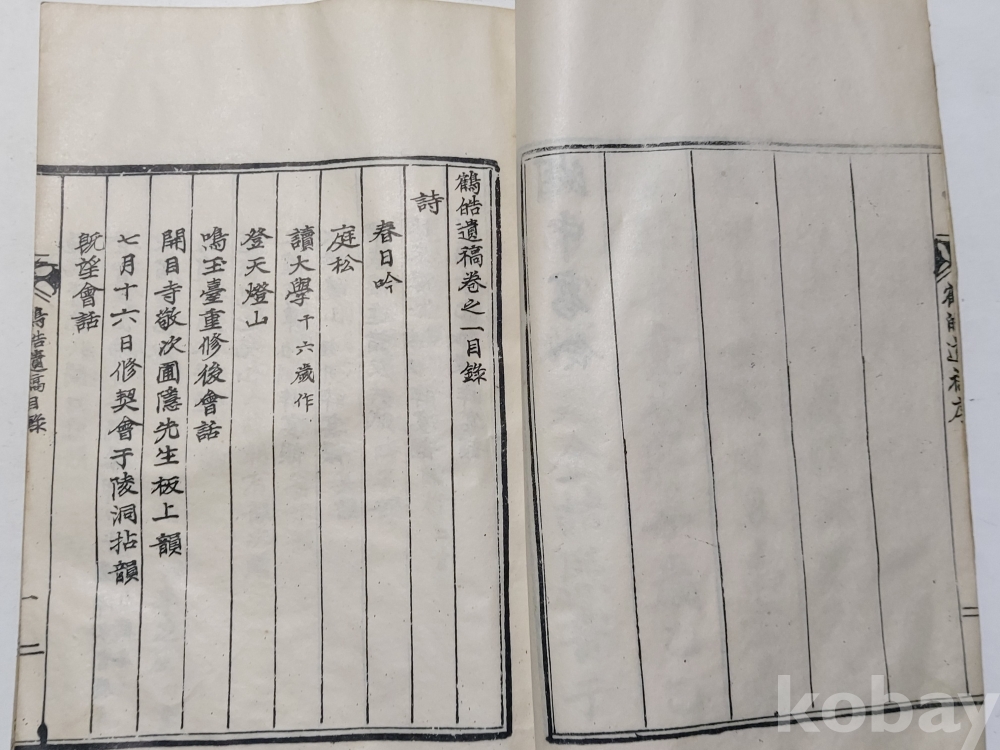 鶴皓遺稿卷之一目錄
詩
春日吟
庭松
讀大學 十六歲作
登天燈山
鳴玉臺重修後會話
開目寺敬次圃隱先生板上韻
七月十六日修契會于陵洞拈韻
旣望會話
鶴皓遺稿目錄
一
二
鶴皓遺稿序
二
kobay